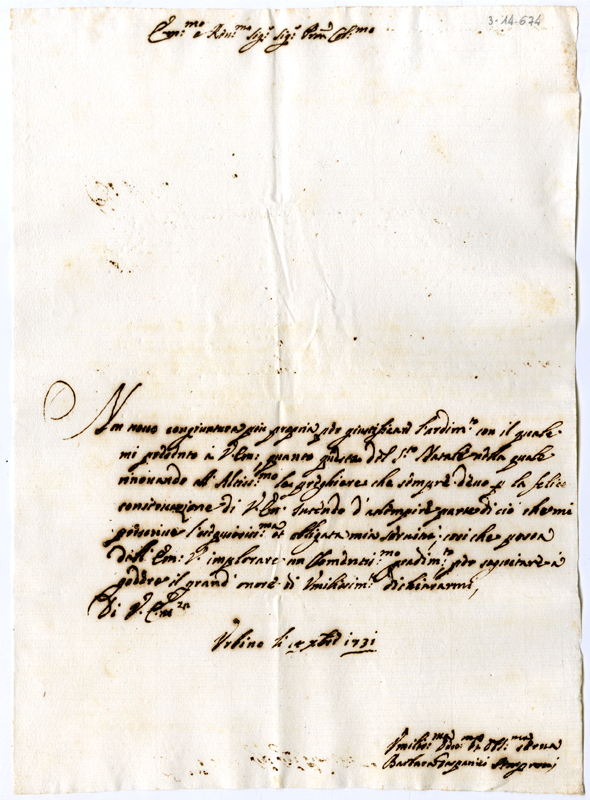 3-14-674
Em.mo e Rev.mo Sig.r Sig.r Pron Col.mo
Non trovo congiuntura più propria per giustificare l'ardim.to con il quale
mi presento à V. Em: quanto questa del S.to Natale nella quale
rinovando all'Altiss.mo le preghiere che sempre devo p la felice
conservazione di V. Em. facendo d'adempire parte di ciò che mi
prescrive l'ossequiosiss.ma et obligata mia servitù; così che possa
dall'Em: V. implorare un Clementiss.mo gradim.to per seguitare à
godere il grand'onore di Umilissim.te dichiararmi,
Di V. Em.za
Urbino li xbre 1731
Umiliss.ma Devo.ma et Obl.ma Serva
Barbara